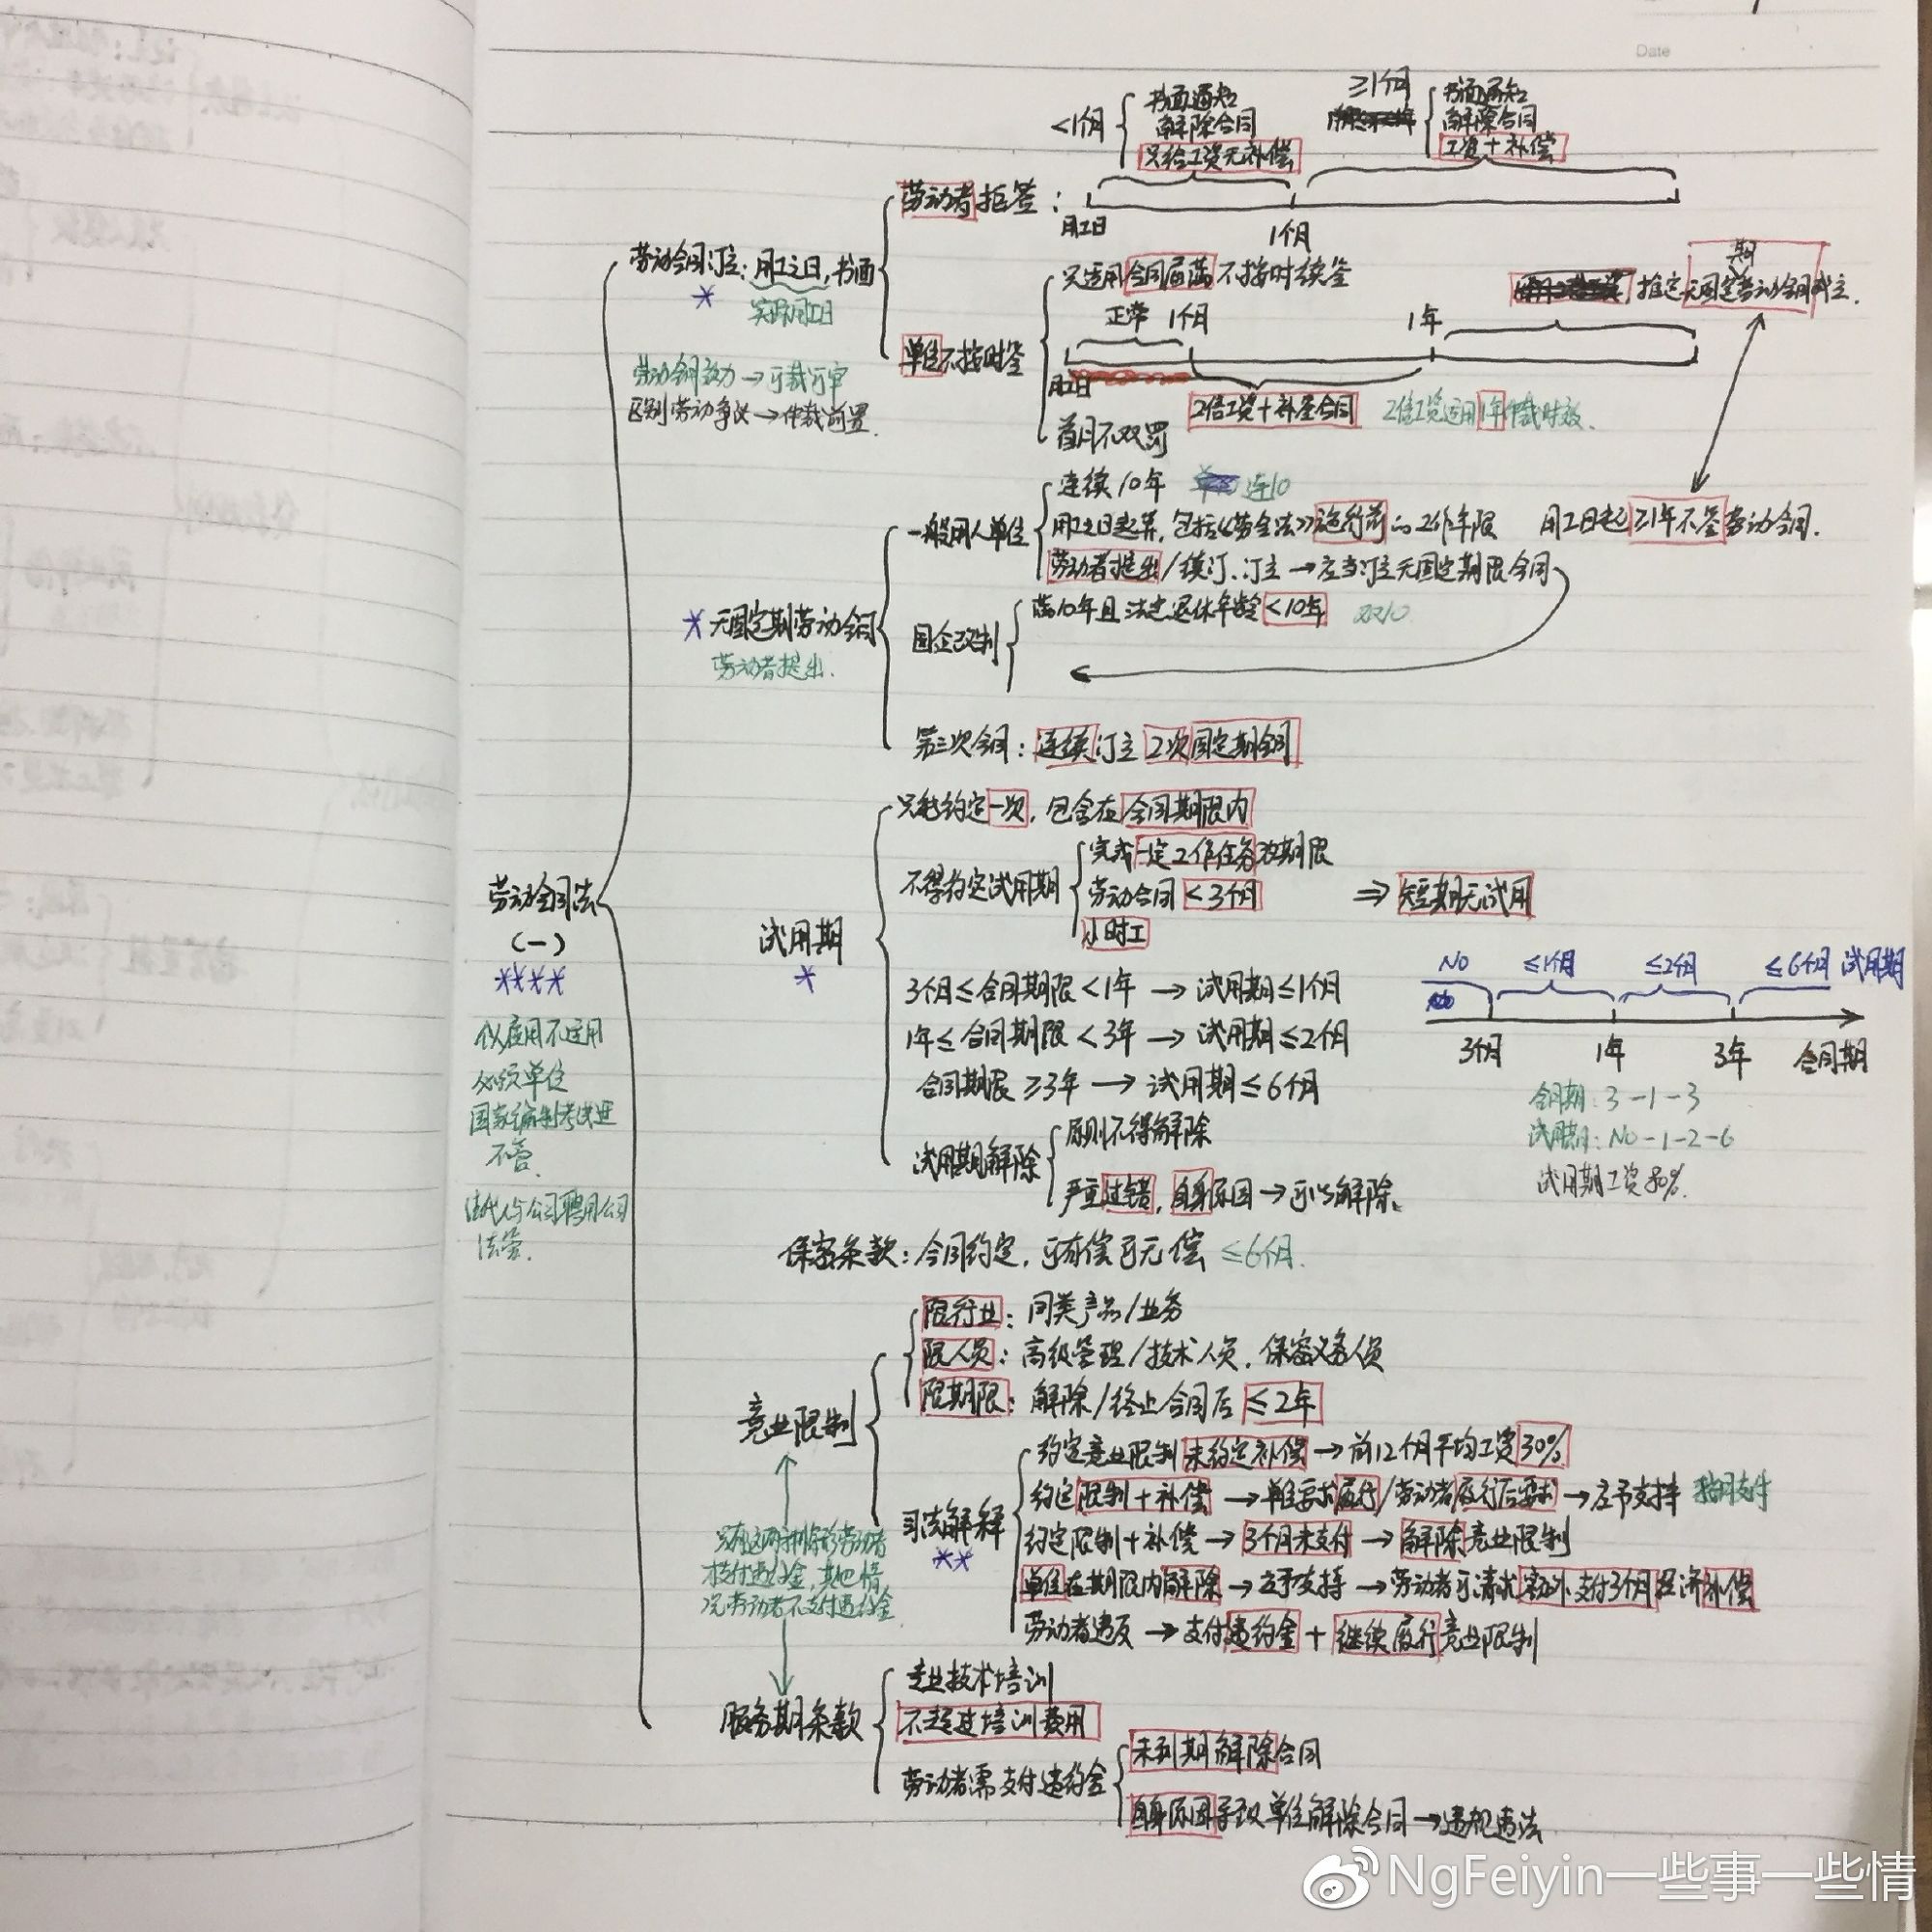 Date
<1个月
书面通知
解除合同
只给工资无补偿
≥1个月
书面通知
解除合同
工资+补偿
劳动者拒签：
用工日
1个月
劳动合同订立：用工之日，书面
实际用工日
劳动合同效力→可裁可审
区别劳动争议→仲裁前置.
单位不按时签
只适用合同届满不按时续签
正常 1个月
1年
推定无固定期劳动合同成立.
用工日
2倍工资+补签合同
2倍工资适用1年仲裁时效.
首月不双罚
无固定期劳动合同
劳动者提出.
一般用人单位
连续10年 连10
用工之日起算，包括《劳合法》施行前的工作年限
用工日起≥1年不签劳动合同.
劳动者提出/续订、订立→应当订立无固定期限合同
国企改制
满10年且法定退休年龄<10年 双10
第三次合同：连续订立2次固定期合同
劳动合同法
(一)
****
仅应用不适用
必须单位
国家编制考试进
不管.
法代人与公司聘用公司
法管.
试用期
只能约定一次，包含在合同期限内
不得约定试用期
完成一定工作任务为期限
劳动合同<3个月
小时工
⇒短期无试用
3个月≤合同期限<1年→试用期≤1个月
1年≤合同期限<3年→试用期≤2个月
合同期限≥3年→试用期≤6个月
NO ≤1个月 ≤2个月 ≤6个月 试用期
3个月 1年 3年 合同期
合同期：3-1-3
试用期：NO-1-2-6
试用期工资80%.
试用期解除
原则不得解除
严重过错，自身原因→可以解除.
保密条款：合同约定，可有偿可无偿 ≤6个月.
竞业限制
限行业：同类产品/业务
限人员：高级管理/技术人员，保密义务人员
限期限：解除/终止合同后≤2年
司法解释
**
约定竞业限制未约定补偿→前12个月平均工资30%
约定限制+补偿→单位要求履行/劳动者履行后要求→应予支持 按月支付
约定限制+补偿→3个月未支付→解除竞业限制
单位在期限内解除→应予支持→劳动者可请求额外支付3个月经济补偿
劳动者违反→支付违约金+继续履行竞业限制
只有这两种情形劳动者
支付违约金，其他情
况劳动者不支付违约金
服务期条款
专业技术培训
不超过培训费用
劳动者需支付违约金
未到期解除合同
自身原因导致单位解除合同→违规违法
NgFeiyin一些事一些情